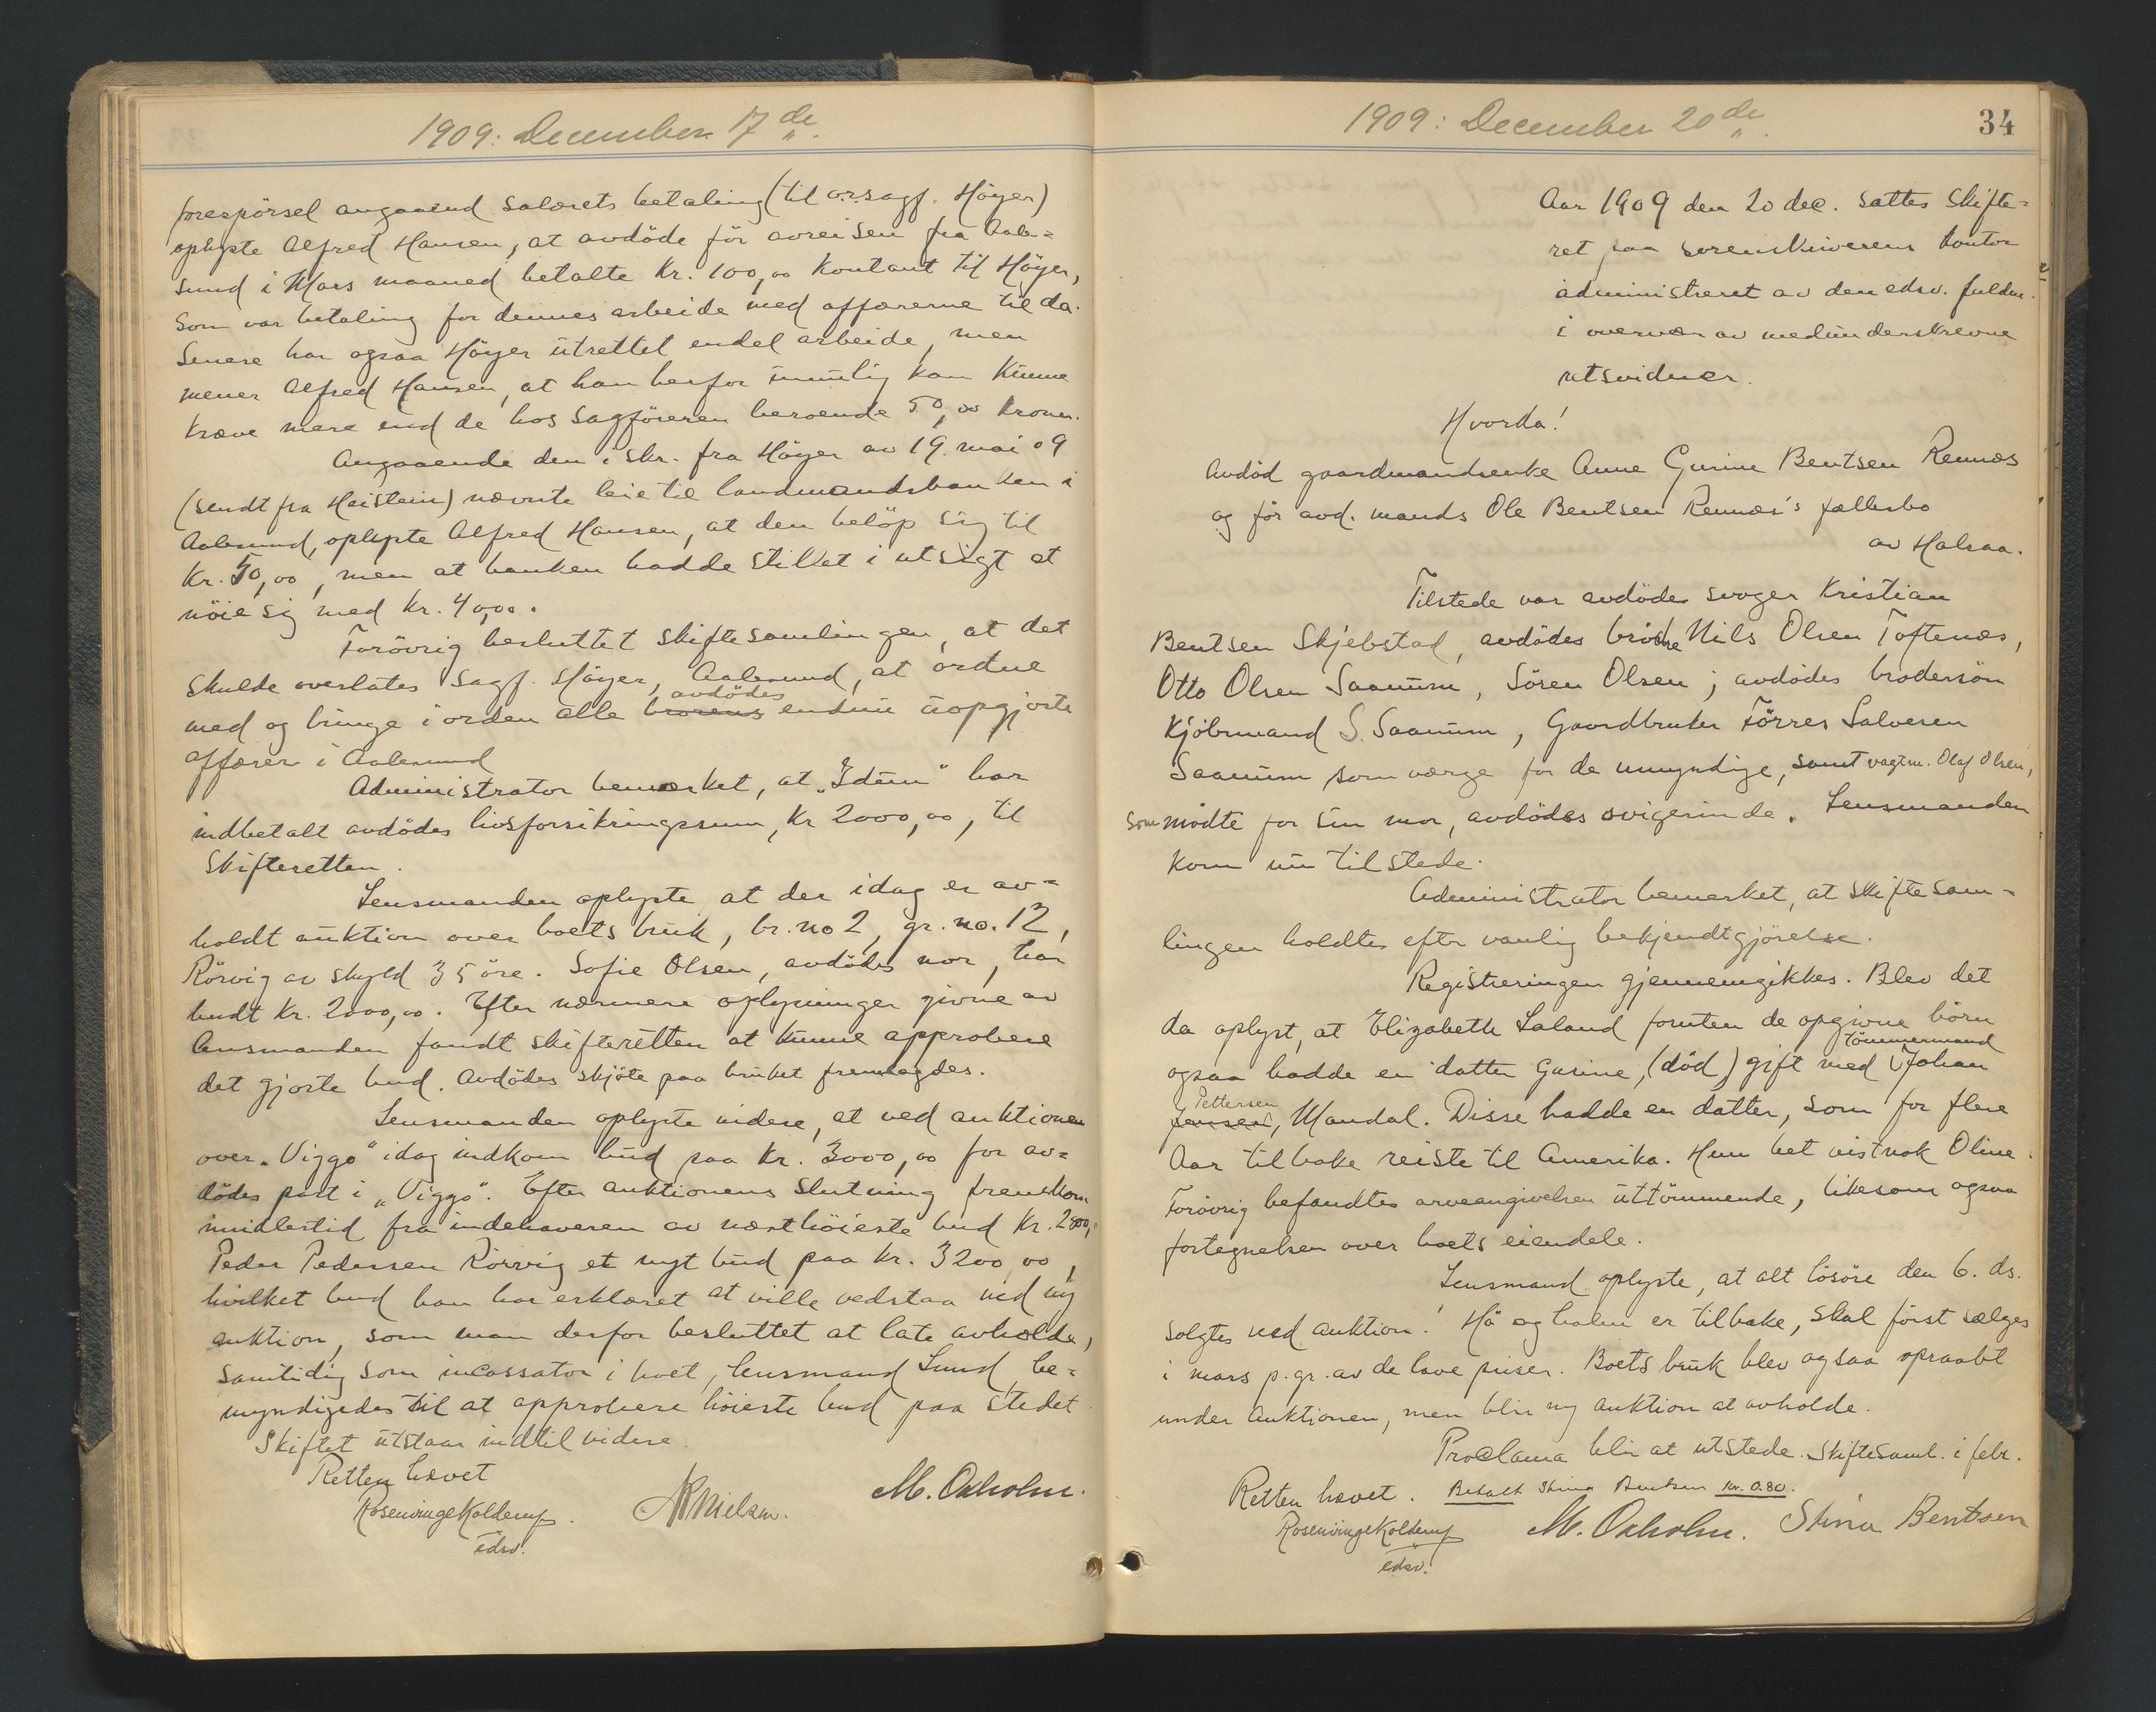 1909: December 17de
forespörsel angaaend salærets betaling (til o.r.sagf. Höyer)
oplyste Alfred Hansen, at avdöde för avreisen fra Aale=
sund i Mars maaned betalte Kr. 100,00 kontant til Höyer,
som var betaling for dennes arbeide med affærerne til da.
Senere har ogsaa Höyer utrettet endel arbeide, men
mener Alfred Hansen, at han herfor umulig kan kunne
kræve mere end de hos sagföreren beroende 50,00 kroner.
Angaaende den i skr. fra Höyer av 19. mai 09
(sendt fra Heistein) nævnte leie til landmandsbanken i
Aalesund, oplyste Alfred Hansen, at den belöp sig til
Kr. 50,00, men at banken hadde stillet i utsigt at
nöie sig med Kr. 40,00.
Forövrig besluttet skiftesamlingen, at det
skulde overlates Sagf. Höyer, Aalesund, at ordne
med og bringe i orden alle brorens avdödes endnu uopgjorte
affærer i Aalesund
Administrator bemærket, at „Idun“ har
indbetalt avdödes livsforsikringssum, Kr 2000,00, til
Skifteretten.
Lensmanden oplyste at der idag er av=
holdt auktion over boets bruk, br. no 2, gr. no. 12,
Rörvig av skyld 35 öre. Sofie Olsen, avdödes mor, har
budt Kr. 2000,00. Efter nærmere oplysninger givne av
lensmanden fandt skifteretten at kunne approbere
det gjorte bud. Avdödes skjöte paa bruket fremlagdes.
Lensmanden oplyste videre, at ved auktionen
over „Viggo“ idag indkom bud paa Kr. 3000,00 for av=
dödes part i „Viggo“. Efter auktionens slutning fremkom
imidlertid fra indehaveren av næsthöieste bud Kr. 2900,
Peder Pedersen Rörvig et nyt bud paa Kr. 3200,00,
hvilket bud han har erklæret at ville vedstaa ved ny
auktion, som man derfor besluttet at late avholde,
samtidig som incassator i boet, lensmand Lund, be=
myndigedes til at approbere höieste bud paa stedet.
Skiftet utstaar indtil videre.
Retten hævet
Rosenvinge Kolderup. edsv. Nielsen. M. Oxholm.
1909: December 20de 34
Aar 1909 den 20 dec. sattes Skifte=
ret paa sorenskriverens kontor
administreret av den edsv. fuldm.
i overvær av medunderskrevne
retsvidner.
Hvorda!
Avdöd gaardmandsenke Anne Gurine Bentsen Rennæs
og för avd. mands Ole Bentsen Rennæs's fællesbo
av Halsaa.
Tilstede var avdödes svoger Kristian
Bentsen Skjebstad, avdödes brödre Nils Olsen Toftenæs,
Otto Olsen Saanum, Sören Olsen; avdödes brodersön
Kjöbmand S. Saanum, Gaardbruker Törres Salvesen
Saanum som værge for de umyndige, samt vagtm. Olaf Olsen,
som mödte for sin mor, avdödes svigerinde. Lensmanden
kom nu tilstede.
Administrator bemerket, at skiftesam=
lingen holdtes efter vanlig bekjendtgjörelse.
Registreringen gjennemgikkes. Blev det
da oplyst, at Elizabeth Laland foruten de opgivne börn
ogsaa hadde en datter Gurine, (död) gift med Tömmermand Johan
Jensen Pettersen, Mandal. Disse hadde en datter, som for flere
Aar tilbake reiste til Amerika. Hun het vistnok Oline.
Forövrig befandtes arveangivelsen uttömmende, likesom ogsaa
fortegnelsen over boets eiendele.
Lensmand. oplyste, at alt lösöre den 6. ds.
solgtes ved auktion. Hö og halm er tilbake, skal först sælges
i mars p. gr. av de lave priser. Boets bruk blev ogsaa opraabt
under auktionen, men blir ny auktion at avholde.
Proclama blir at utstede. Skiftesaml. i febr.
Retten hævet. Betalt Stina Bentsen kr. 0.80.
Rosenvinge Kolderup edsv. M. Oxholm. Stina Bentsen